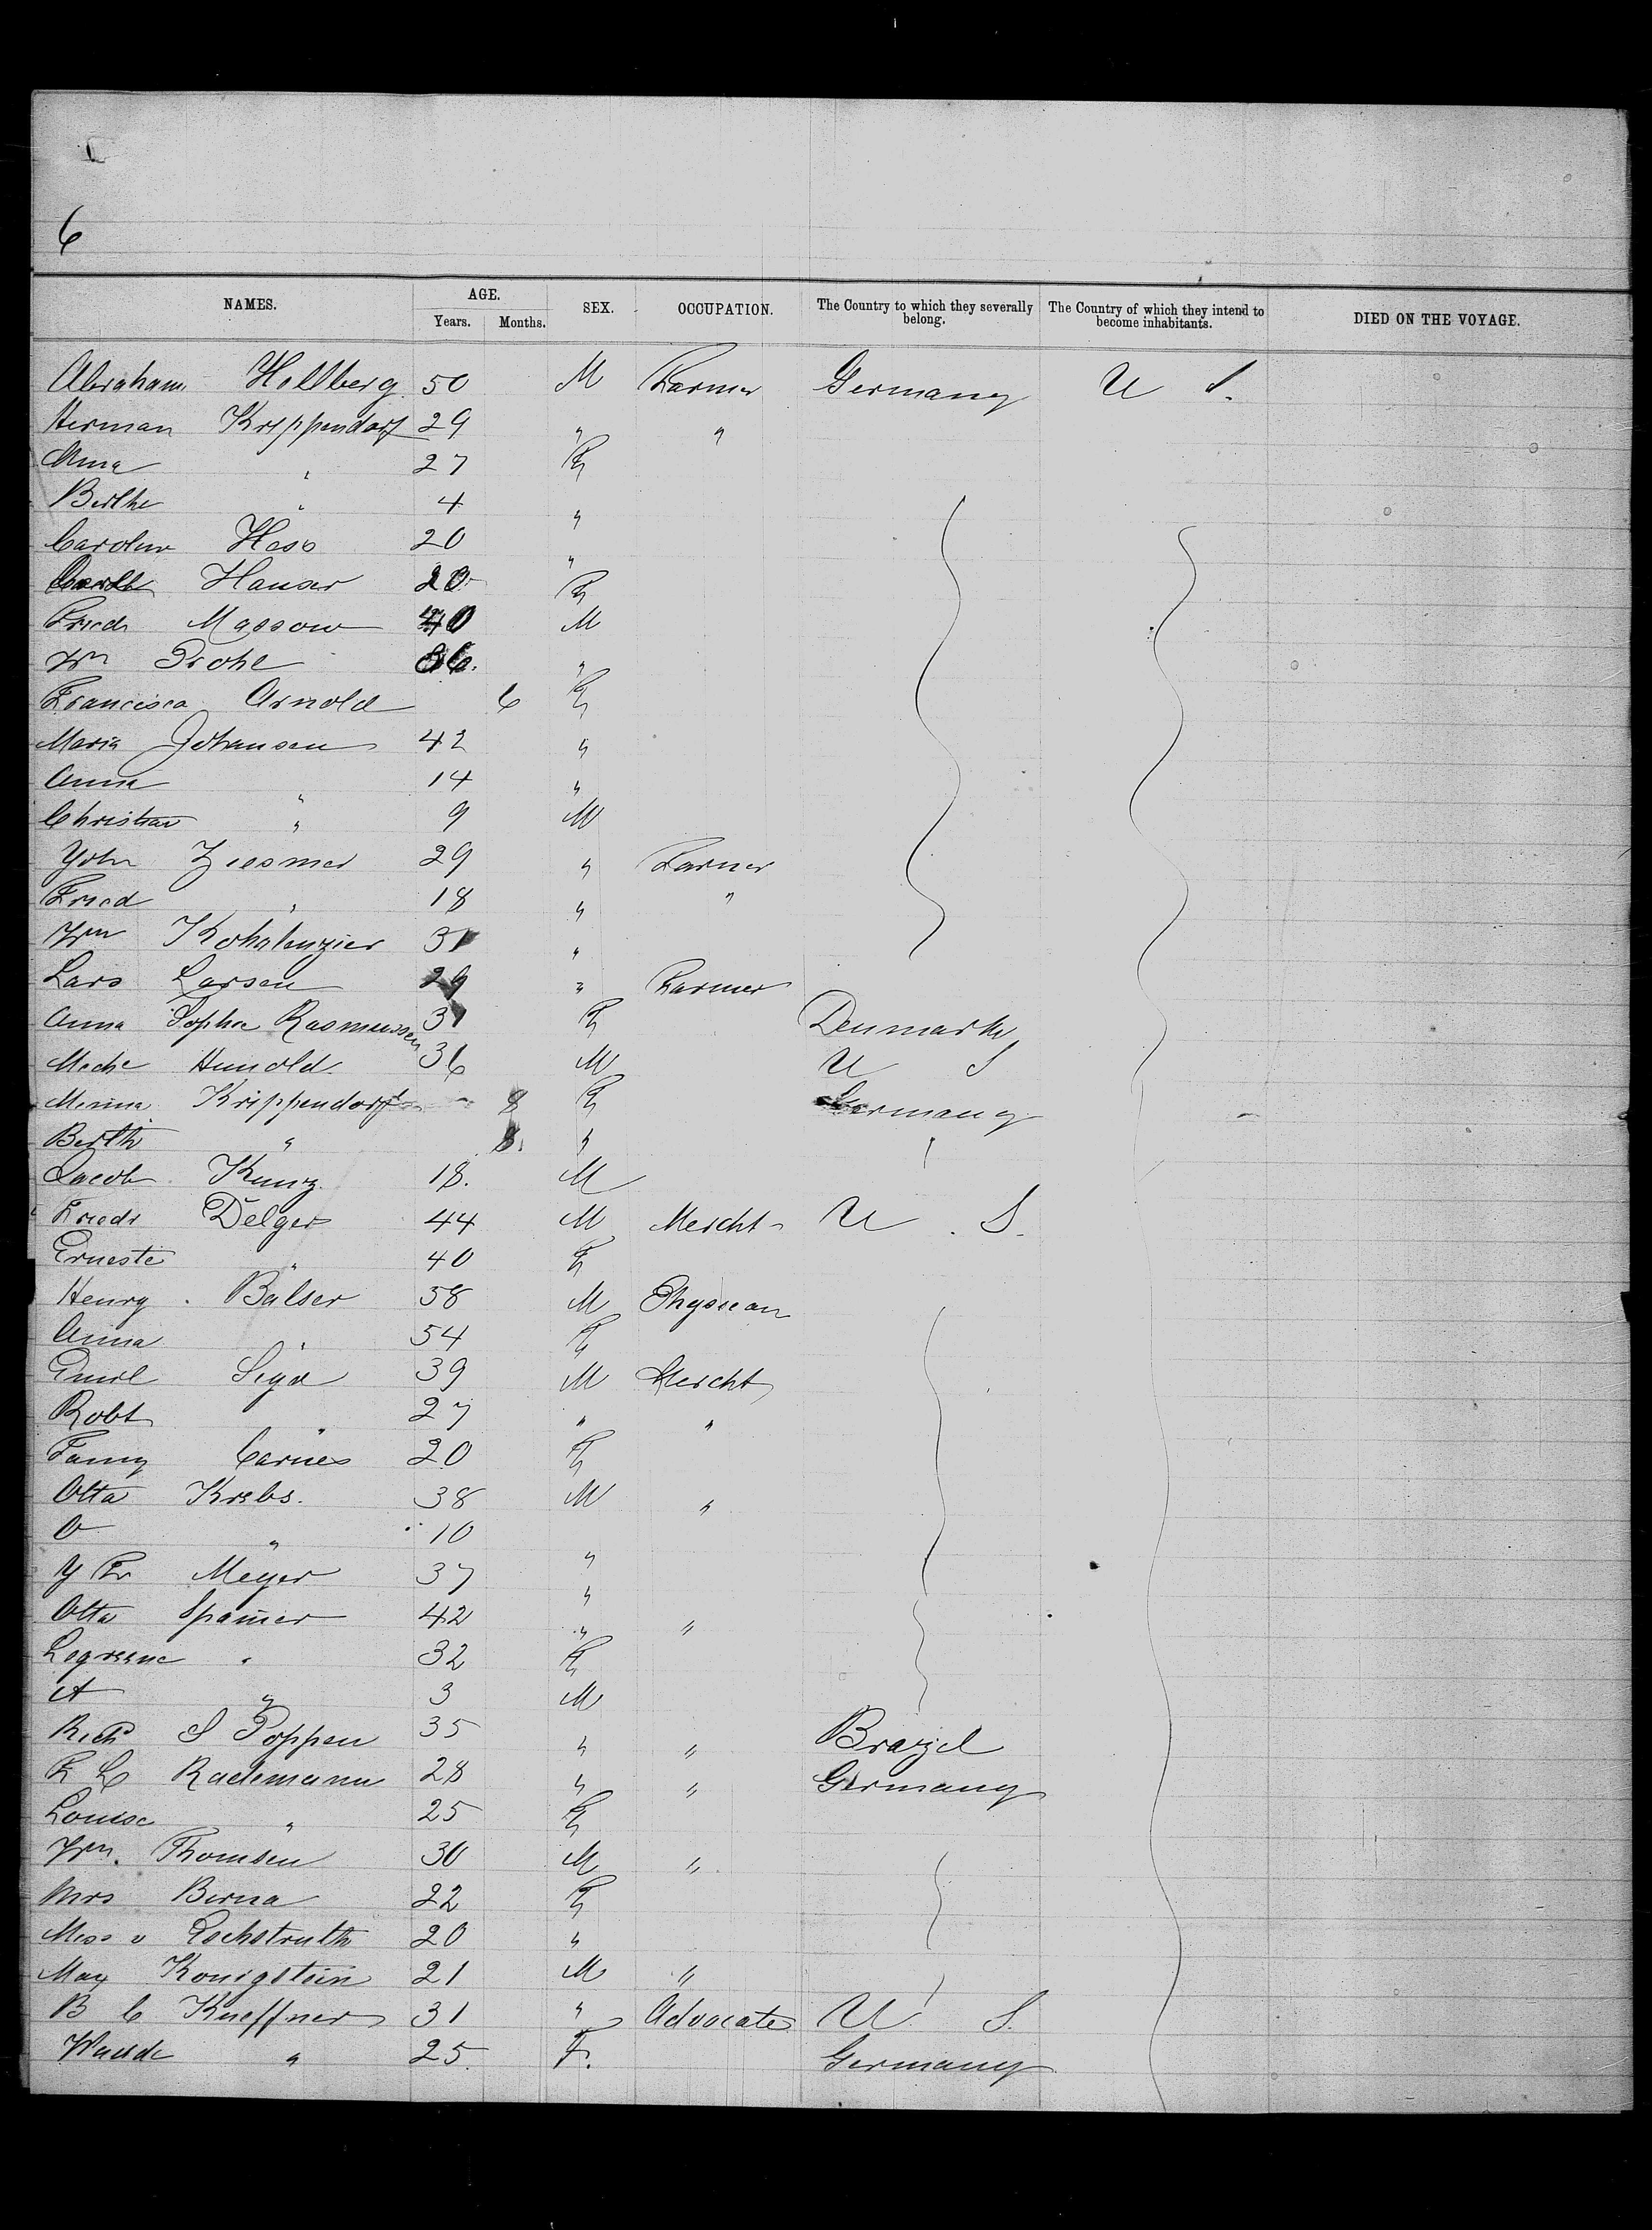 6
NAMES. AGE. Years. Months. SEX. OCCUPATION. The Country to which they severally belong. The Country of which they intend to become inhabitants. DIED ON THE VOYAGE.
Abraham Hellberg 50 M Farmer Germany U S.
Herman Krippendorf 29 " "
27 F
Berthe " 4 "
Carolin Hess 20 "
Hauser 20 F
Friedr Massow 40 M
Wm Prohl "
Francisca Arnold 6 F
Maria Johansen 42 "
Anna " 14 "
Christian " 9 M
John Ziesmer 29 " Farmer
Fried " 18 " "
Wm 31 "
Lars Larsen 29 " Farmer
Anna Sophie Rasmussen 31 F Denmark
Hunold 36 M U S
Minna Krippendorf 8 F Germany
Berth " 8. "
Jacob Kunz 18. M
Friedr Delger 44 M Mercht U. S.
Erneste " 40 F
Henry Balser 58 M Physician
Anna " 54 F
Emil 39 M Mercht
Robt " 27 " "
Fanny Carnes 20 F
Otto Krebs. 38 M "
O " 10 "
J Fr Meyer 37 "
Otto Spamer 42 " "
" 32 F
A " 3 M
Richd S Poppen 35 " " Brazil
F C Rademann 28 " " Germany
Louise " 25 F
Wm. Thomsen 30 M "
Mrs Berna 22 F
Miss v Eschstruth 20 "
Max Konigstein 21 M "
B C Kueffner 31 " Advocate U. S.
" 25. F. Germany